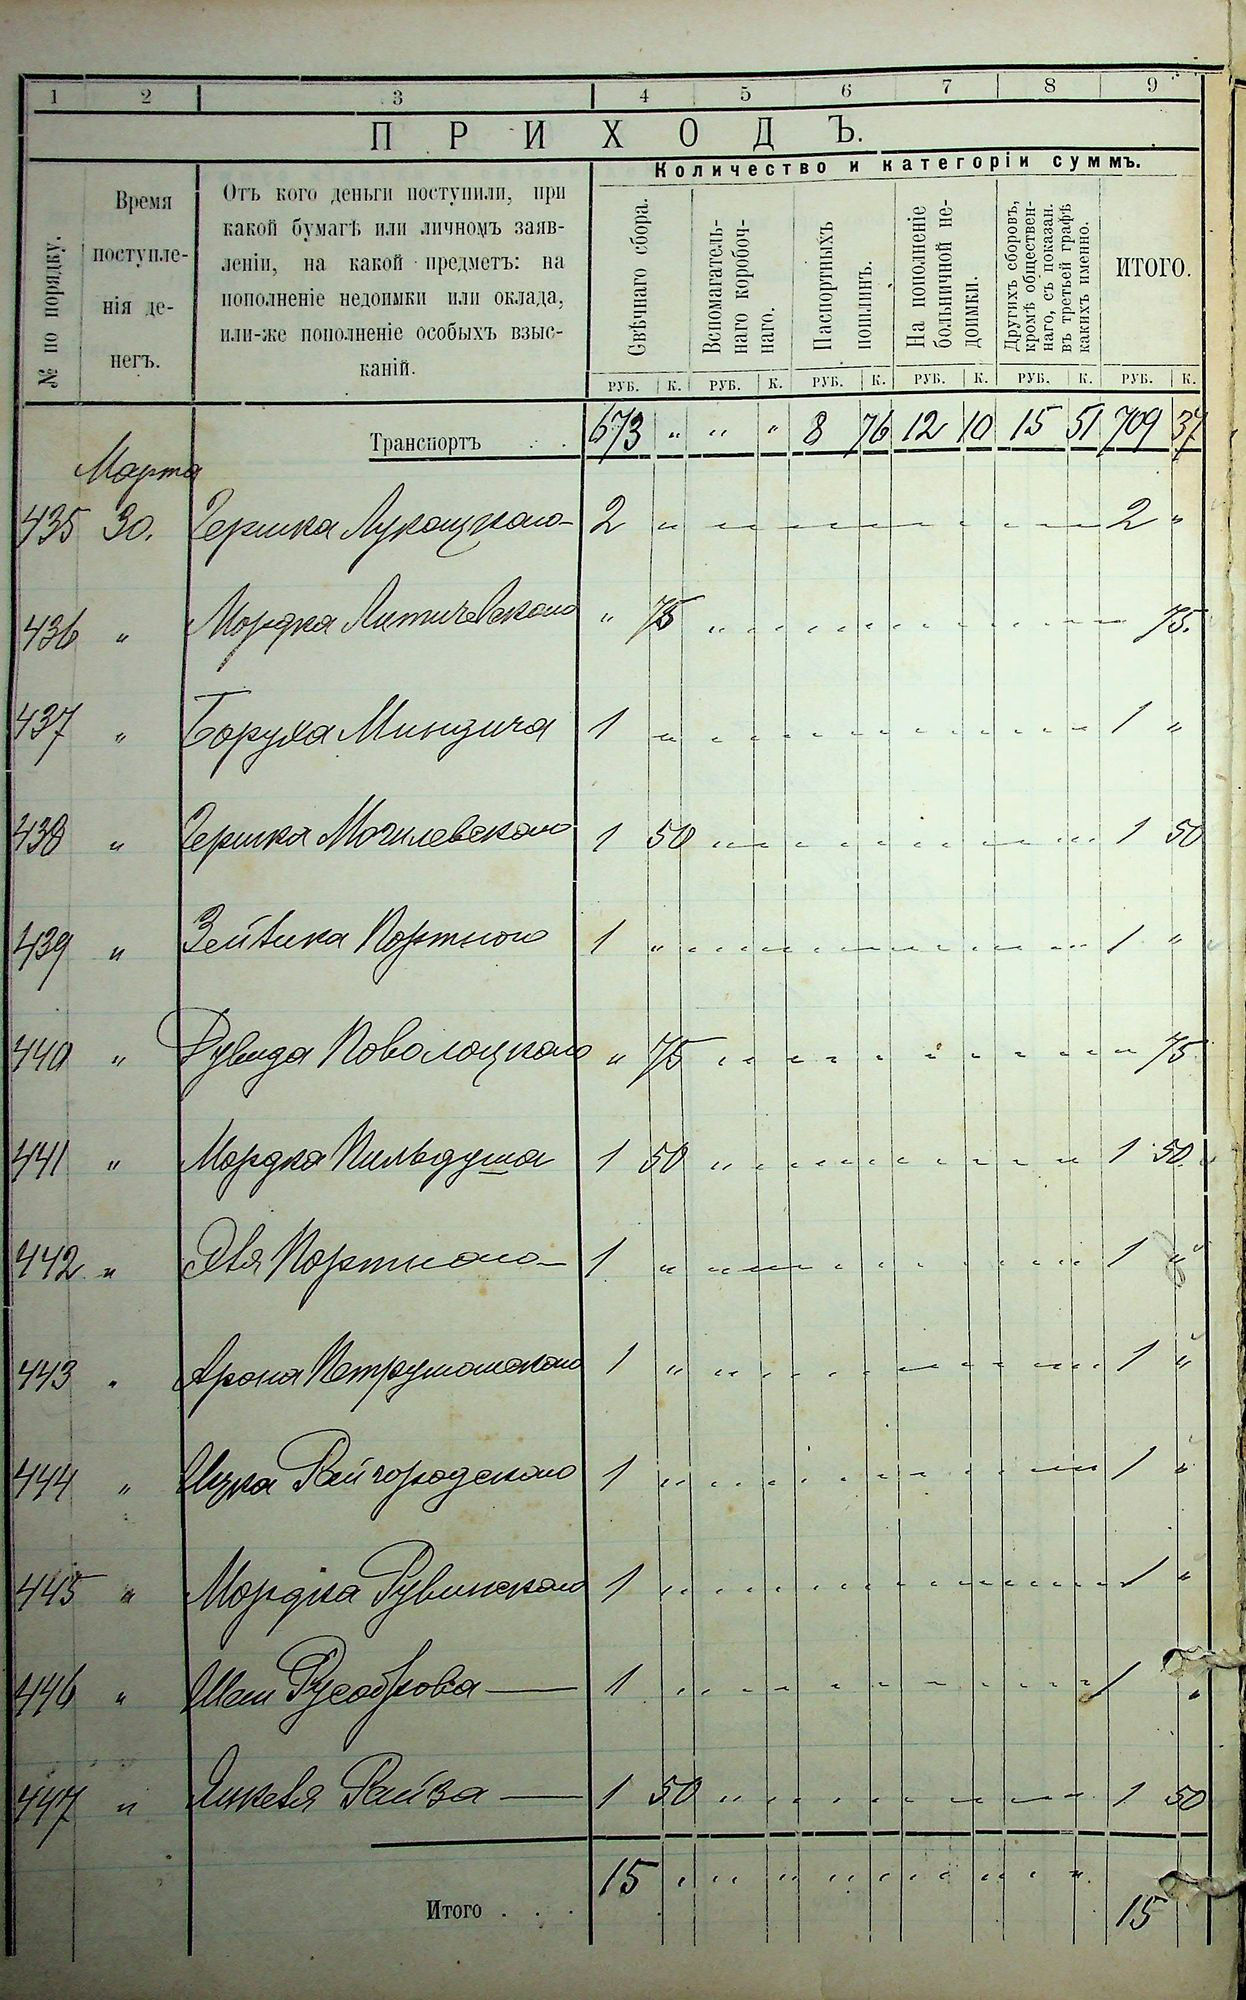 1 2 3 4 5 6 7 8 9
ПРИХОДЪ.
Количество и категоріи суммъ.
№ по порядку.
Время
поступле-
нія де-
негъ.
Отъ кого деньги поступили, при
какой бумагѣ или личномъ заяв-
леніи, на какой предметъ: на
пополненіе недоимки или оклада,
или-же пополненіе особыхъ взыс-
каній.
Свѣчнаго сбора.
Вспомагатель-
наго коробоч-
наго.
Паспортныхъ
пошлинъ.
На пополненіе
больничной не-
доимки.
Другихъ сборовъ,
кромѣ обществен-
наго, съ показан.
въ третьей графѣ
какихъ именно.
ИТОГО.
РУБ. К. РУБ. К. РУБ. К. РУБ. К. РУБ. К. РУБ. К.
Транспортъ . . 673 " " " 8 76 12 10 15 51 709 37
Марта
435 30. Гершка Лукацкаго 2 " 2 "
436 " Мордка Литичевскаго " 75 75.
437 " Боруха Миндича 1 " 1 "
438 " Гершка Могилевскаго 1 50 1 50
439 " Зейвика Портного 1 " 1 "
440 " Дувида Поволоцкаго " 75 75
441 " Мордка Пильдуша 1 50 1 50
442 " Портного 1 " 1 "
443 " Арона 1 " 1 "
444 " Ицка Райгородскаго 1 " 1 "
445 " Мордка Рувинскаго 1 " 1 "
446 " Шаи 1 " 1 "
447 " Янкеля Райза 1 50 1 50
15 "
Итого . . . 15